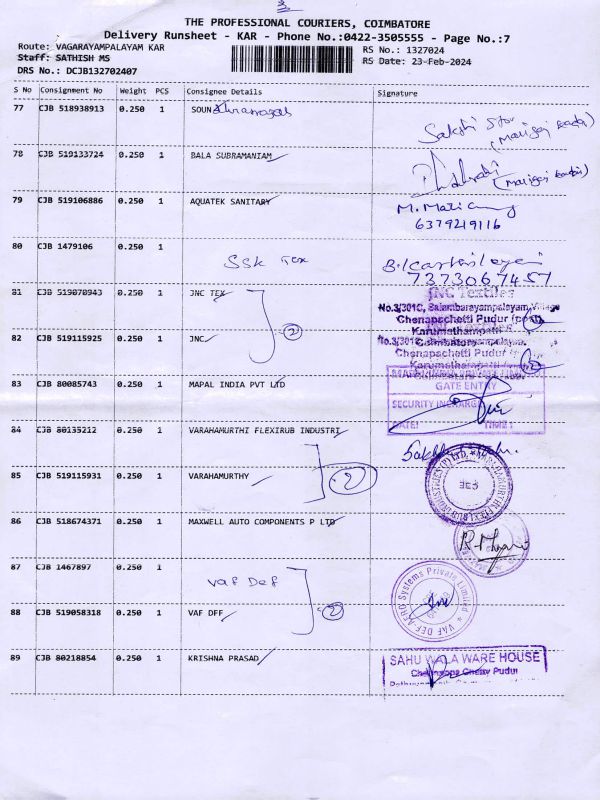 THE PROFESSIONAL COURIERS, COIMBATORE
Delivery Runsheet - KAR - Phone No.:0422-3505555 - Page No.:7
Route: VAGARAYAMPALAYAM KAR
RS No.: 1327024
Staff: SATHISH MS
RS Date: 23-Feb-2024
DRS No.: DCJB132702407
S No Consignment No Weight PCS Consignee Details Signature
77 CJB 518938913 0.250 1 SOUN
Sakthi Stor
78 CJB 519133724 0.250 1 BALA SUBRAMANIAM
79 CJB 519106886 0.250 1 AQUATEK SANITARY
6379219116
80 CJB 1479106 0.250 1
SSK Tex
7373067457
81 CJB 519870943 0.250 1 JNC TEX
JNC Textiles
No.3/301C, Salambarayampalayam, Village
Chenapschetti Pudur (post)
Karumathampatti
2
82 CJB 519115925 0.250 1 JNC
Chenapschetti Pudur
Karumathampatti
83 CJB 80085743 0.250 1 MAPAL INDIA PVT LTD
GATE ENTRY
SECURITY INCHARGE
DATE: TIME:
84 CJB 80135212 0.250 1 VARAHAMURTHI FLEXIRUB INDUSTRI
2
85 CJB 519115931 0.250 1 VARAHAMURTHY
86 CJB 518674371 0.250 1 MAXWELL AUTO COMPONENTS P LTD
87 CJB 1467897 0.250 1
Vaf Def
2
88 CJB 519058318 0.250 1 VAF DFF
VAF DEF AERO Systems Private Limited
89 CJB 80218854 0.250 1 KRISHNA PRASAD
SAHU WALA WARE HOUSE
Chetty Pudur